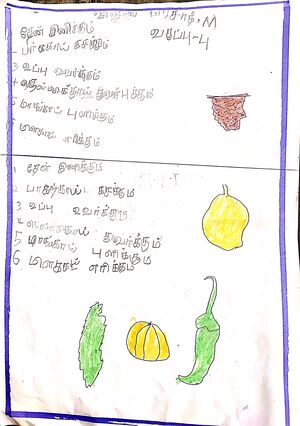 பிரசாத், M
வகுப்பு-பு
தேன் இனிக்கும்
பாகற்காய் கசக்கும்
3 உப்பு உவர்க்கும்
4 நெல்லிக்காய் துவர்க்கும்
5 மாங்காய் புளிக்கும்
மிளகாய் எரிக்கும்
1 தேன் இனிக்கும்
2 பாகற்காய் கசக்கும்
3 உப்பு உவர்க்கும்
4 துவர்க்கும்
5 மாங்காய் புளிக்கும்
6 மிளகாய் எரிக்கும்